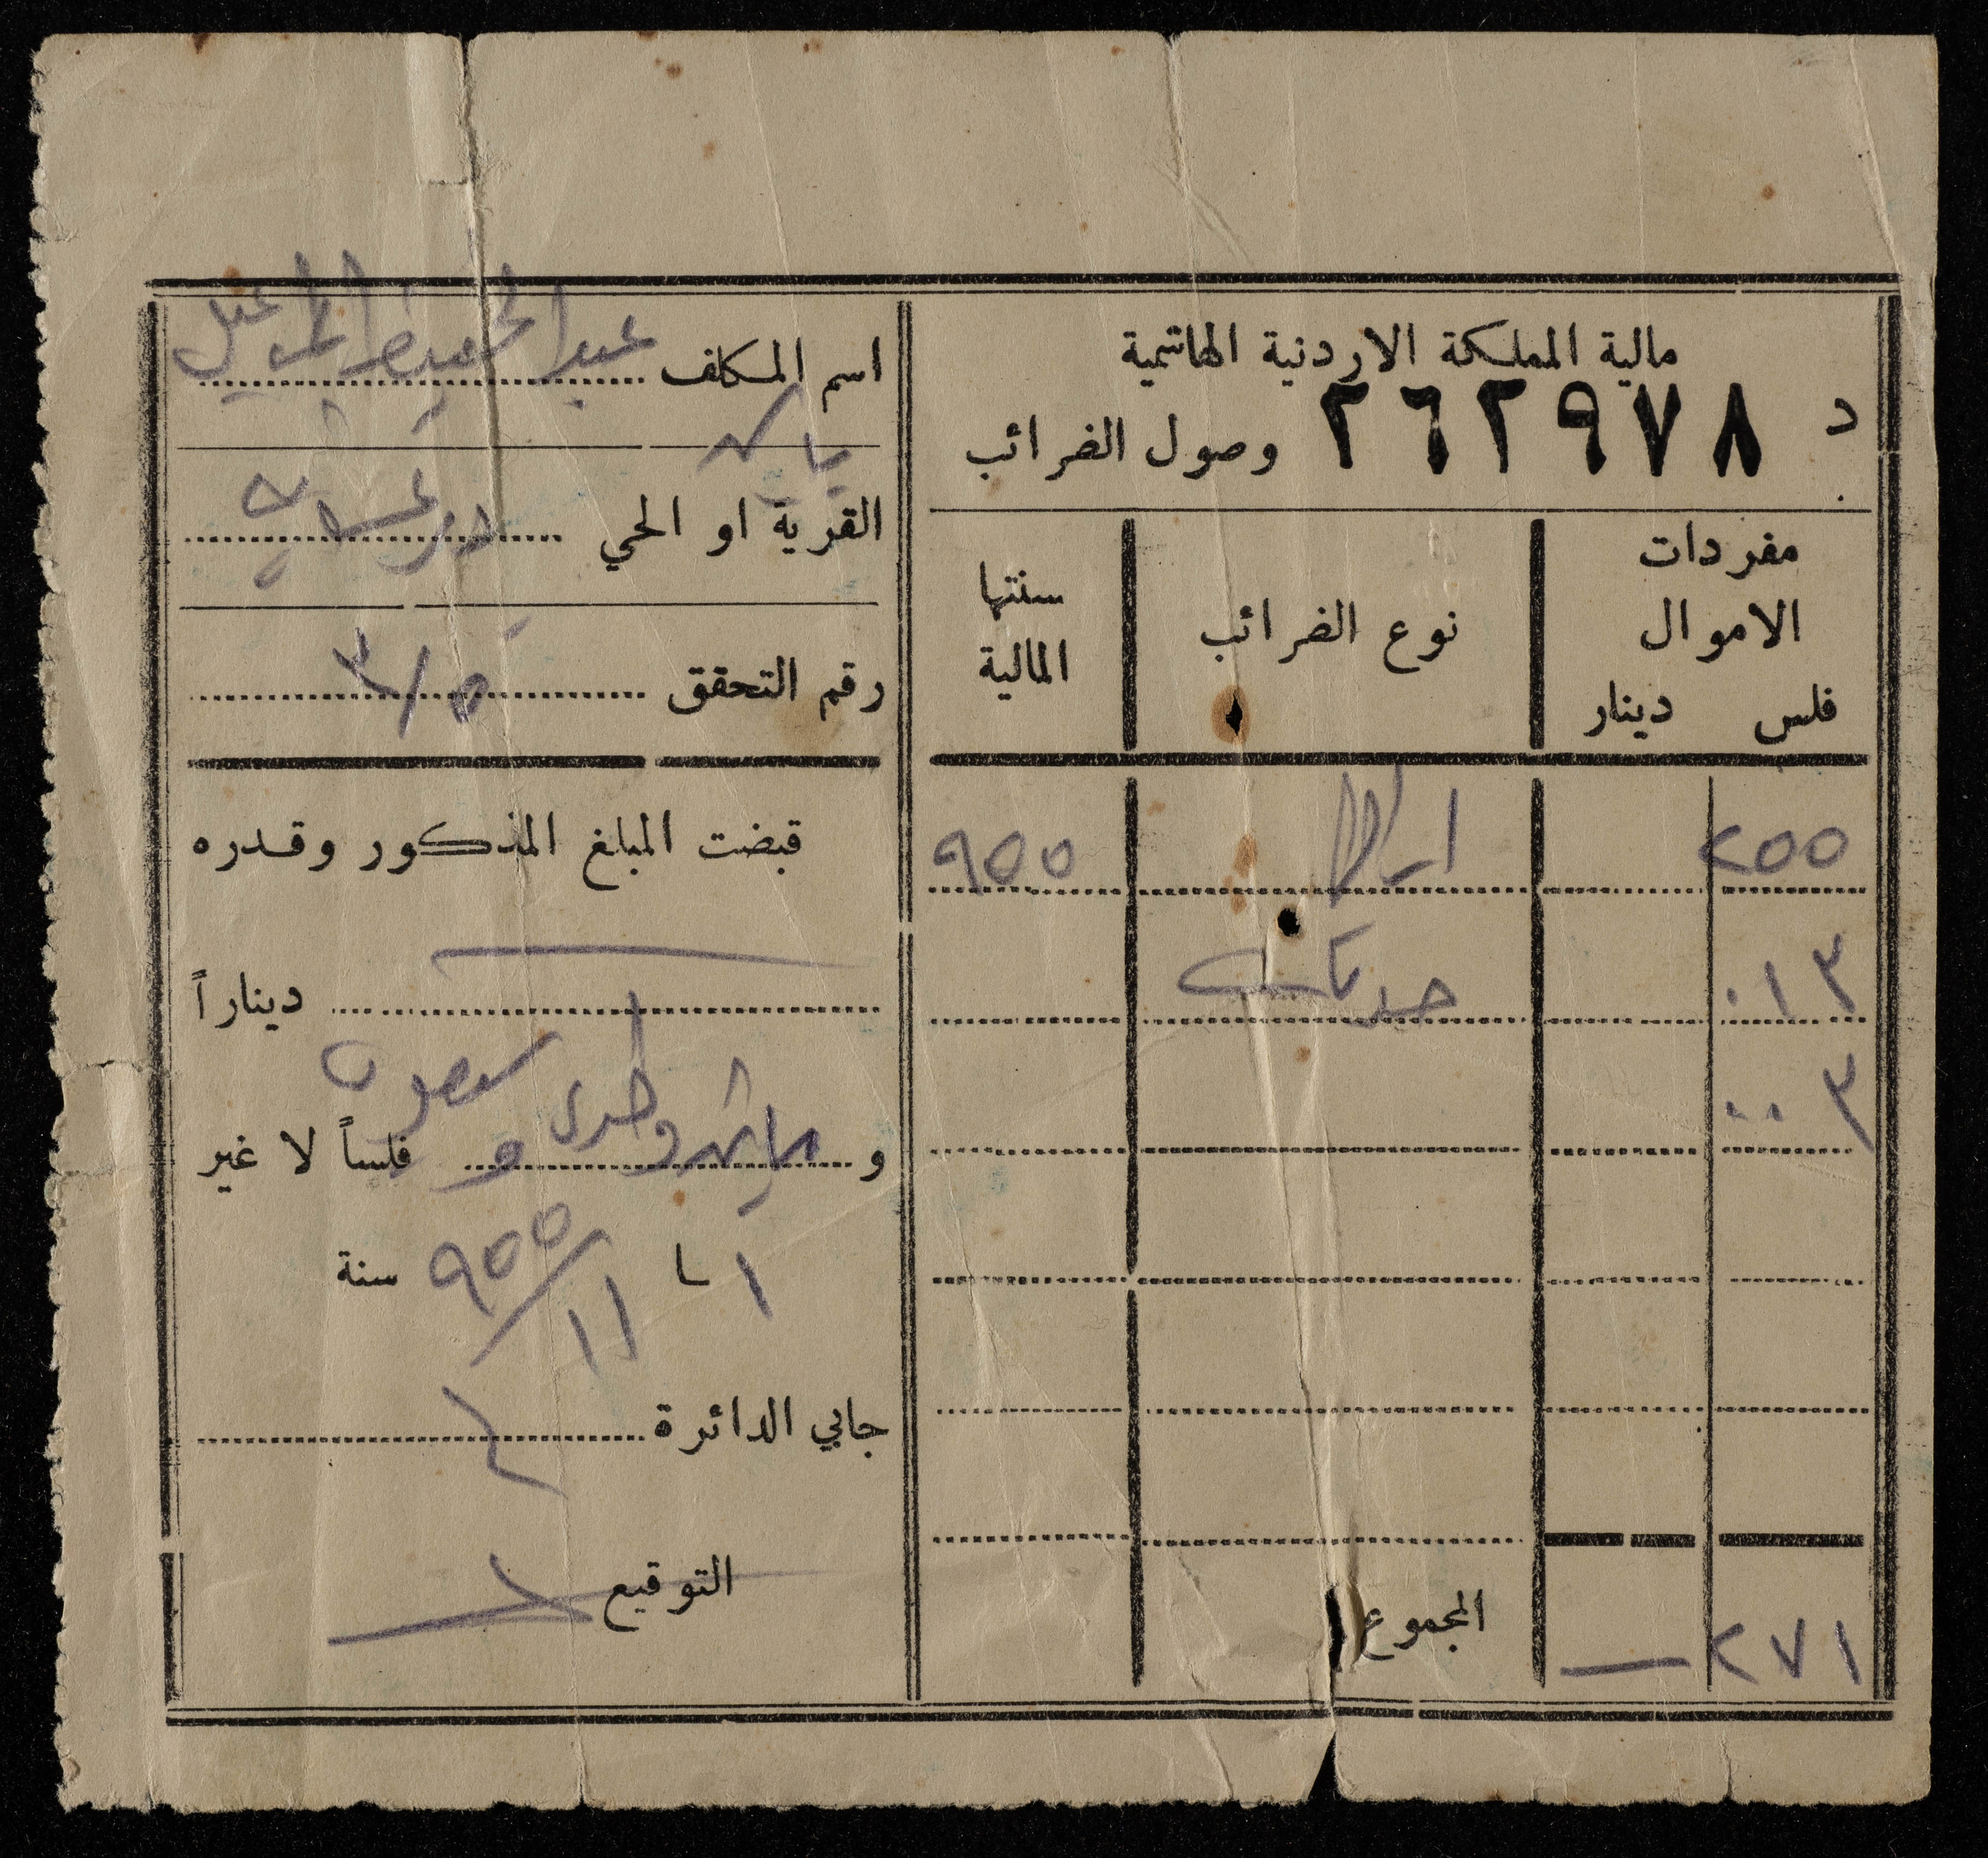 مالية المملكة الاردنية الهاشمية
د ٢٦٢٩٧٨ وصول الضرائب
مفردات الاموال
فلس دينار
نوع الضرائب
سنتها المالية
٢٥٥ ٩٥٥
٠١٣
٠٠٣
المجموع
٢٧١ —
اسم المكلف عبد الحميد
القرية او الحي دير غسانه
رقم التحقق ٣/٥
قبضت المبلغ المذكور وقدره
ديناراً
و مايتان واحدى وسبعون فلساً لا غير
١ / ١١ / ٩٥٥ سنة
جابي الدائرة
التوقيع